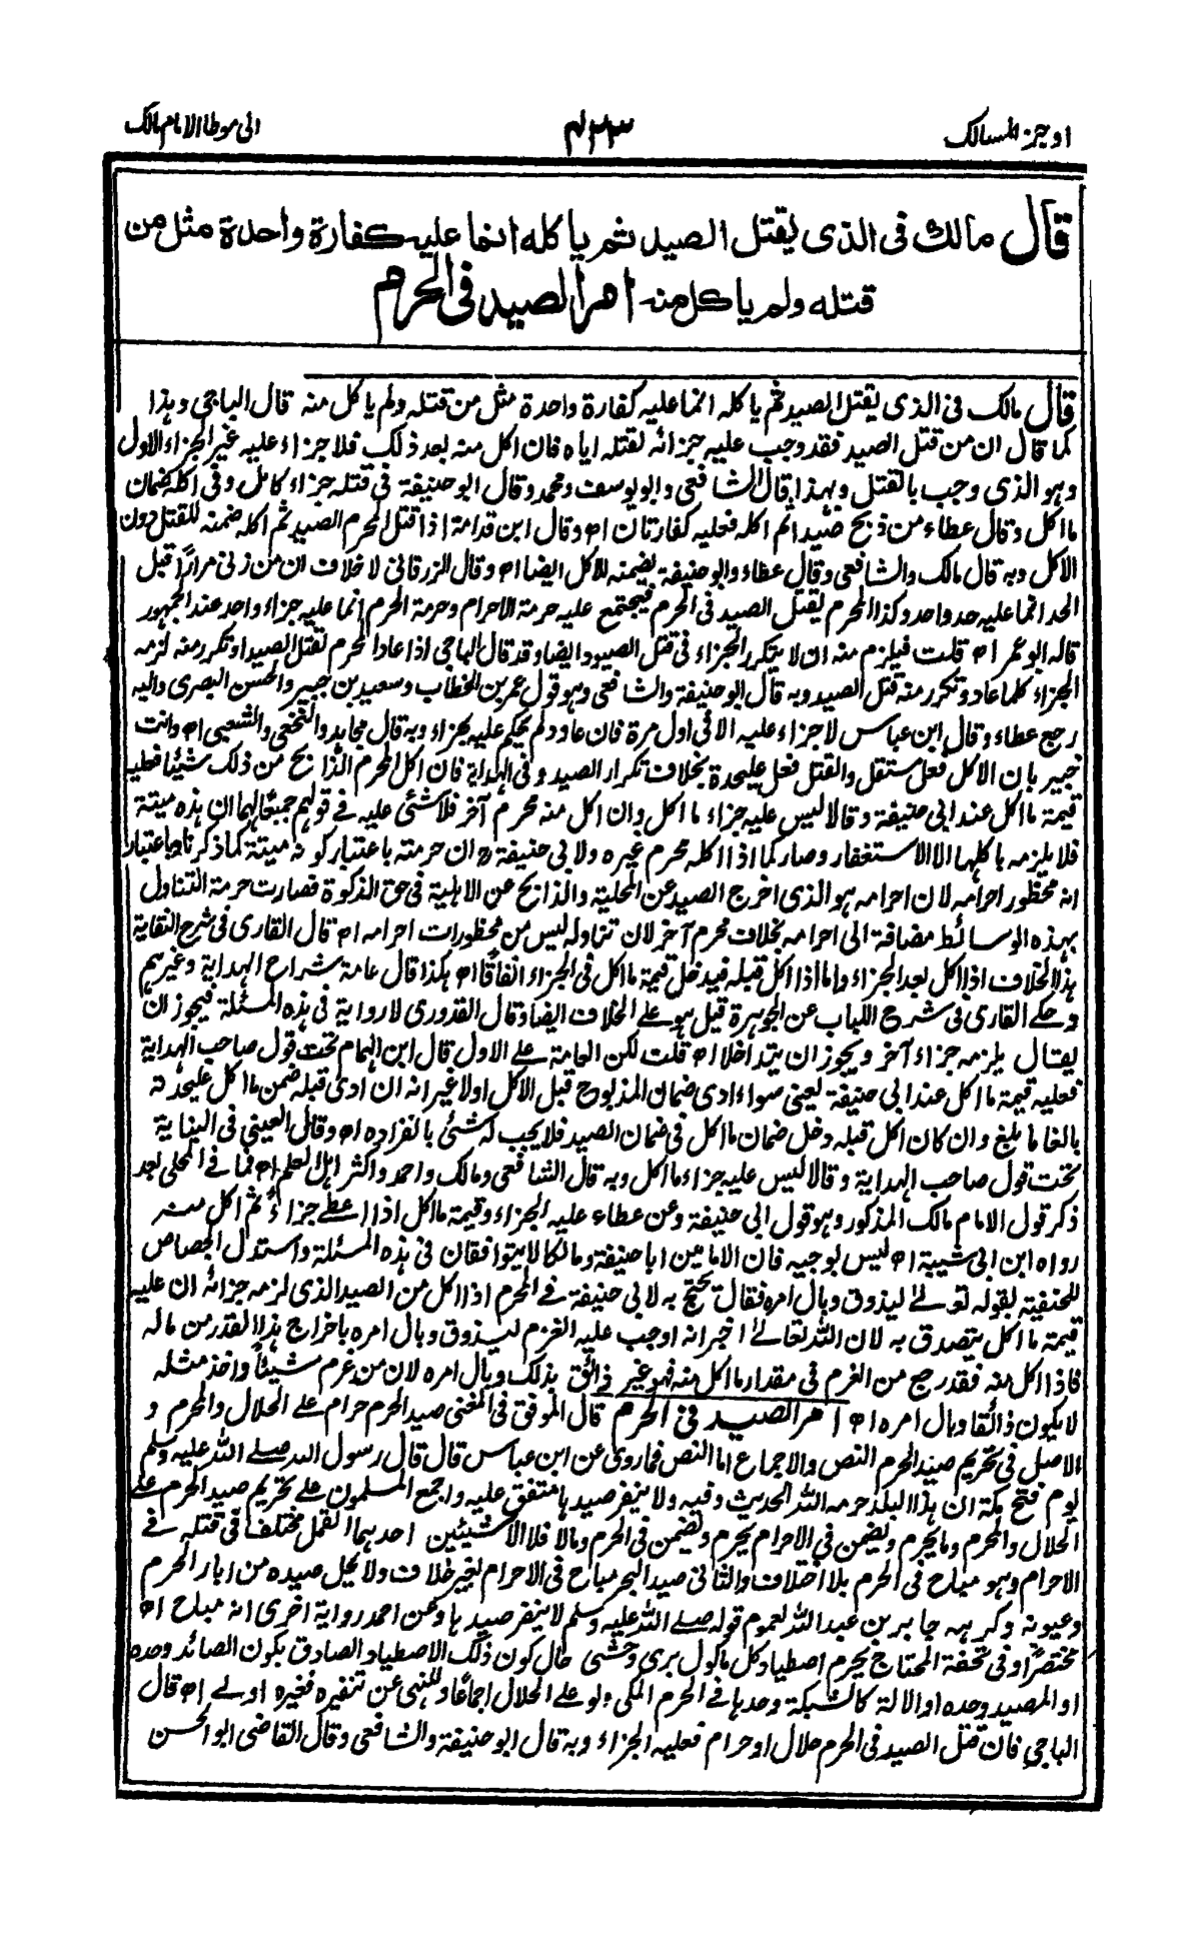 اوجز المسالك ٤٢٣ الى موطا الامام مالك
قال مالك فى الذى يقتل الصيد ثم ياكله انما عليه كفارة واحدة مثل من
قتله ولم ياكل منه امر الصيد فى الحرم
قال مالك فى الذى يقتل الصيد ثم ياكله انما عليه كفارة واحدة مثل من قتله ولم ياكل منه قال الباجى وهذا
كما قال ان من قتل الصيد فقد وجب عليه جزائه لقتله اياه فان اكل منه بعد ذلك فلا جزاء عليه غير الجزاء الاول
وهو الذى وجب بالقتل وبهذا قال الشافعى وابو يوسف ومحمد وقال ابو حنيفة فى قتله جزاء كامل وفى اكله ضمان
ما اكل وقال عطاء من ذبح صيدا ثم اكله فعليه كفارتان اه وقال ابن قدامة اذا قتل المحرم الصيد ثم اكله ضمنه للقتل دون
الاكل وبه قال مالك والشافعى وقال عطاء وابو حنيفة يضمنه للاكل ايضا اه وقال الزرقانى لا خلاف ان من زنى مرارا قبل
الحد انما عليه حد واحد وكذا المحرم يقتل الصيد فى الحرم فيجتمع عليه حرمة الاحرام وحرمة الحرم انما عليه جزاء واحد عند الجمهور
قاله ابو عمر اه قلت فيلزم منه ان لا يتكرر الجزاء فى قتل الصيود ايضا وقد قال الباجى اذا عاد المحرم لقتل الصيد او تكرر منه لزمه
الجزاء كلما عاد وتكرر منه قتل الصيد وبه قال ابو حنيفة والشافعى وهو قول عمر بن الخطاب وسعيد بن جبير والحسن البصرى واليه
رجع عطاء وقال ابن عباس لا جزاء عليه الا فى اول مرة فان عاد لم يحكم عليه بجزاء وبه قال مجاهد والنخعى والشعبى اه وانت
خبير بان الاكل فعل مستقل والقتل فعل عليحدة بخلاف تكرار الصيد وفى الهداية فان اكل المحرم الذابح من ذلك شيئا فعليه
قيمة ما اكل عند ابى حنيفة وقالا ليس عليه جزاء ما اكل وان اكل منه محرم آخر فلا شئ عليه فى قولهم جميعا لهما ان هذه ميتة
فلا يلزمه باكلها الا الاستغفار وصار كما اذا اكله محرم غيره ولابى حنيفة ان حرمته باعتبار كونه ميتة كما ذكرنا وباعتبار
انه محظور احرامه لان احرامه هو الذى اخرج الصيد عن المحلية والذابح عن الاهلية فى حق الذكوة فصارت حرمة التناول
بهذه الوسائط مضافة الى احرامه بخلاف محرم آخر لان تناوله ليس من محظورات احرامه اه قال القارى فى شرح النقاية
هذا الخلاف اذا اكل بعد الجزاء واما اذا اكل قبله فيدخل قيمة ما اكل فى الجزاء اتفاقا اه هكذا قال عامة شراح الهداية وغيرهم
وحكى القارى فى شرح اللباب عن الجوهرة قيل هو على الخلاف ايضا وقال القدورى لا رواية فى هذه المسئلة فيجوز ان
يقال يلزمه جزاء آخر ويجوز ان يتداخلا اه قلت لكن العامة على الاول قال ابن الهمام تحت قول صاحب الهداية
فعليه قيمة ما اكل عند ابى حنيفة يعنى سواء ادى ضمان المذبوح قبل الاكل اولا غير انه ان ادى قبله ضمن ما اكل عليحدته
بالغا ما بلغ وان كان اكل قبله دخل ضمان ما اكل فى ضمان الصيد فلا يجب له شئ بانفراده اه وقال العينى فى البناية
تحت قول صاحب الهداية وقالا ليس عليه جزاء ما اكل وبه قال الشافعى ومالك واحمد واكثر اهل العلم اه فما فى المحلى بعد
ذكر قول الامام مالك المذكور وهو قول ابى حنيفة وعن عطاء عليه الجزاء وقيمة ما اكل اذا اعطى جزاءً ثم اكل منه
رواه ابن ابى شيبة اه ليس بوجيه فان الامامين ابا حنيفة ومالكا لا يتوافقان فى هذه المسئلة واستدل الجصاص
للحنفية بقوله تعالى ليذوق وبال امره فقال يحتج به لابى حنيفة فى المحرم اذا اكل من الصيد الذى لزمه جزائه ان عليه
قيمة ما اكل يتصدق به لان الله تعالى اخبر انه اوجب عليه الغرم ليذوق وبال امره باخراج هذا القدر من ماله
فاذا اكل منه فقد رجع من الغرم فى مقدار ما اكل منه فهو غير ذائق بذلك وبال امره لان من غرم شيئاً واخذ مثله
لا يكون ذائقا وبال امره اه امر الصيد فى الحرم قال الموفق فى المغنى صيد الحرم حرام على الحلال والمحرم و
الاصل فى تحريم صيد الحرم النص والاجماع اما النص فما روى عن ابن عباس قال قال رسول الله صلى الله عليه وسلم
يوم فتح مكة ان هذا البلد حرمه الله الحديث وفيه ولا ينفر صيدها متفق عليه واجمع المسلمون على تحريم صيد الحرم على
الحلال والمحرم وما يحرم ويضمن فى الاحرام يحرم ويضمن فى الحرم ومالا فلا الا شيئين احدهما القمل مختلف فى قتله فى
الاحرام وهو مباح فى الحرم بلا اختلاف والثانى صيد البحر مباح فى الاحرام بغير خلاف ولا يحل صيده من ابار الحرم
وعيونه وكرهه جابر بن عبد الله لعموم قوله صلى الله عليه وسلم لا ينفر صيدها وعن احمد رواية اخرى انه مباح اه
مختصراً وفى تحفة المحتاج يحرم اصطياد كل ماكول برى وحشى حال كون ذلك الاصطياد الصادق بكون الصائد وحده
او المصيد وحده او الالة كالشبكة وحدها فى الحرم المكى ولو على الحلال اجماعًا وللنهى عن تنفيره فغيره اولى اه قال
الباجى فان قتل الصيد فى الحرم حلال او حرام فعليه الجزاء وبه قال ابو حنيفة والشافعى وقال القاضى ابو الحسن